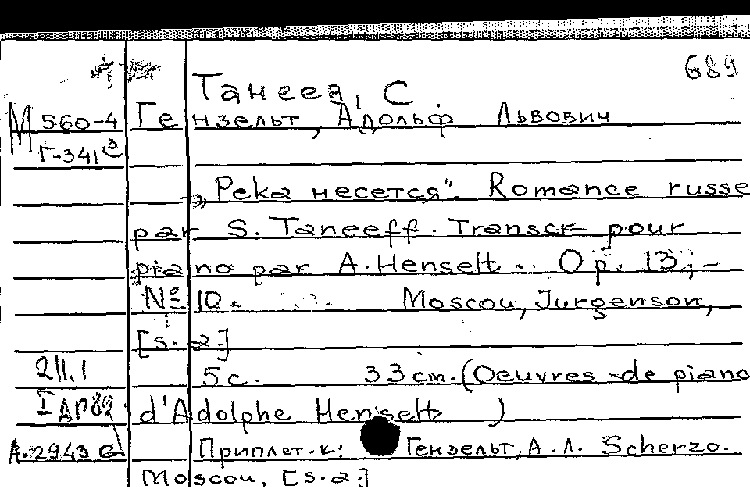 689
Танеев, С
М 560-4 Гензельт, Адольф Львович
Г-341
„Река несется". Romance russe
par S. Taneeff. Transcr pour
piano par A. Henselt.. Op. 13,-
№ 10. Moscou, Jurgenson,
[s.a.]
211.1 5 с. 33 cm. (Oeuvres de piano
d'Adolphe Henselt )
А-2943 Приплет. к: Гензельт, А.Л. Scherzo.
Moscou, [s.a.]